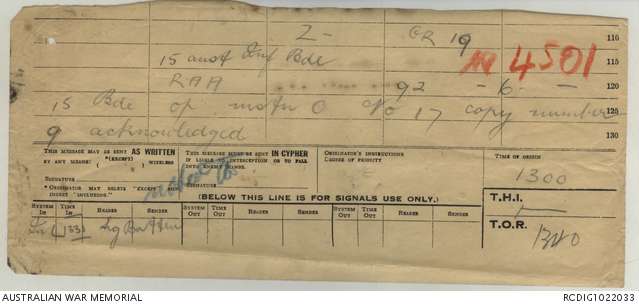 Z - GR 19 110
15 aust Inf Bde 4501 115
RAA 92 - 6 - 120
15 Bde op instn O No 17 copy number 125
9 acknowledged 130
THIS MESSAGE MAY BE SENT AS WRITTEN
BY ANY MEANS: { *(EXCEPT) } WIRELESS
SIGNATURE
* ORIGINATOR MAY DELETE "EXCEPT" AND
INSERT "INCLUDING."
THIS MESSAGE MUST BE SENT IN CYPHER
IF LIABLE TO INTERCEPTION OR TO FALL
INTO ENEMY HANDS.
SIGNATURE
ORIGINATOR'S INSTRUCTIONS
DEGREE OF PRIORITY
TIME OF ORIGIN
1300
(BELOW THIS LINE IS FOR SIGNALS USE ONLY.)
T.H.I.
T.O.R.
SYSTEM IN TIME IN READER SENDER SYSTEM OUT TIME OUT READER SENDER SYSTEM OUT TIME OUT READER SENDER
AUSTRALIAN WAR MEMORIAL RCDIG1022033